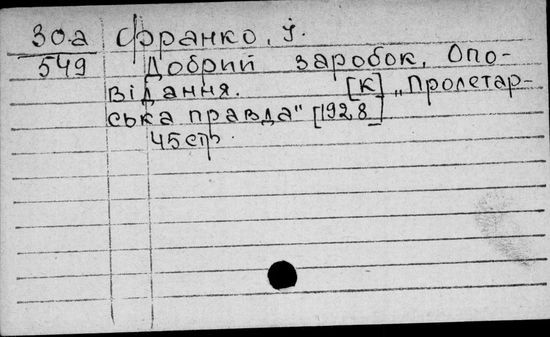 30.а Франко, І.
549 Добрий заробок, Опо-
відання. [К] „Пролетар-
ська правда" [1928]
45 стр.